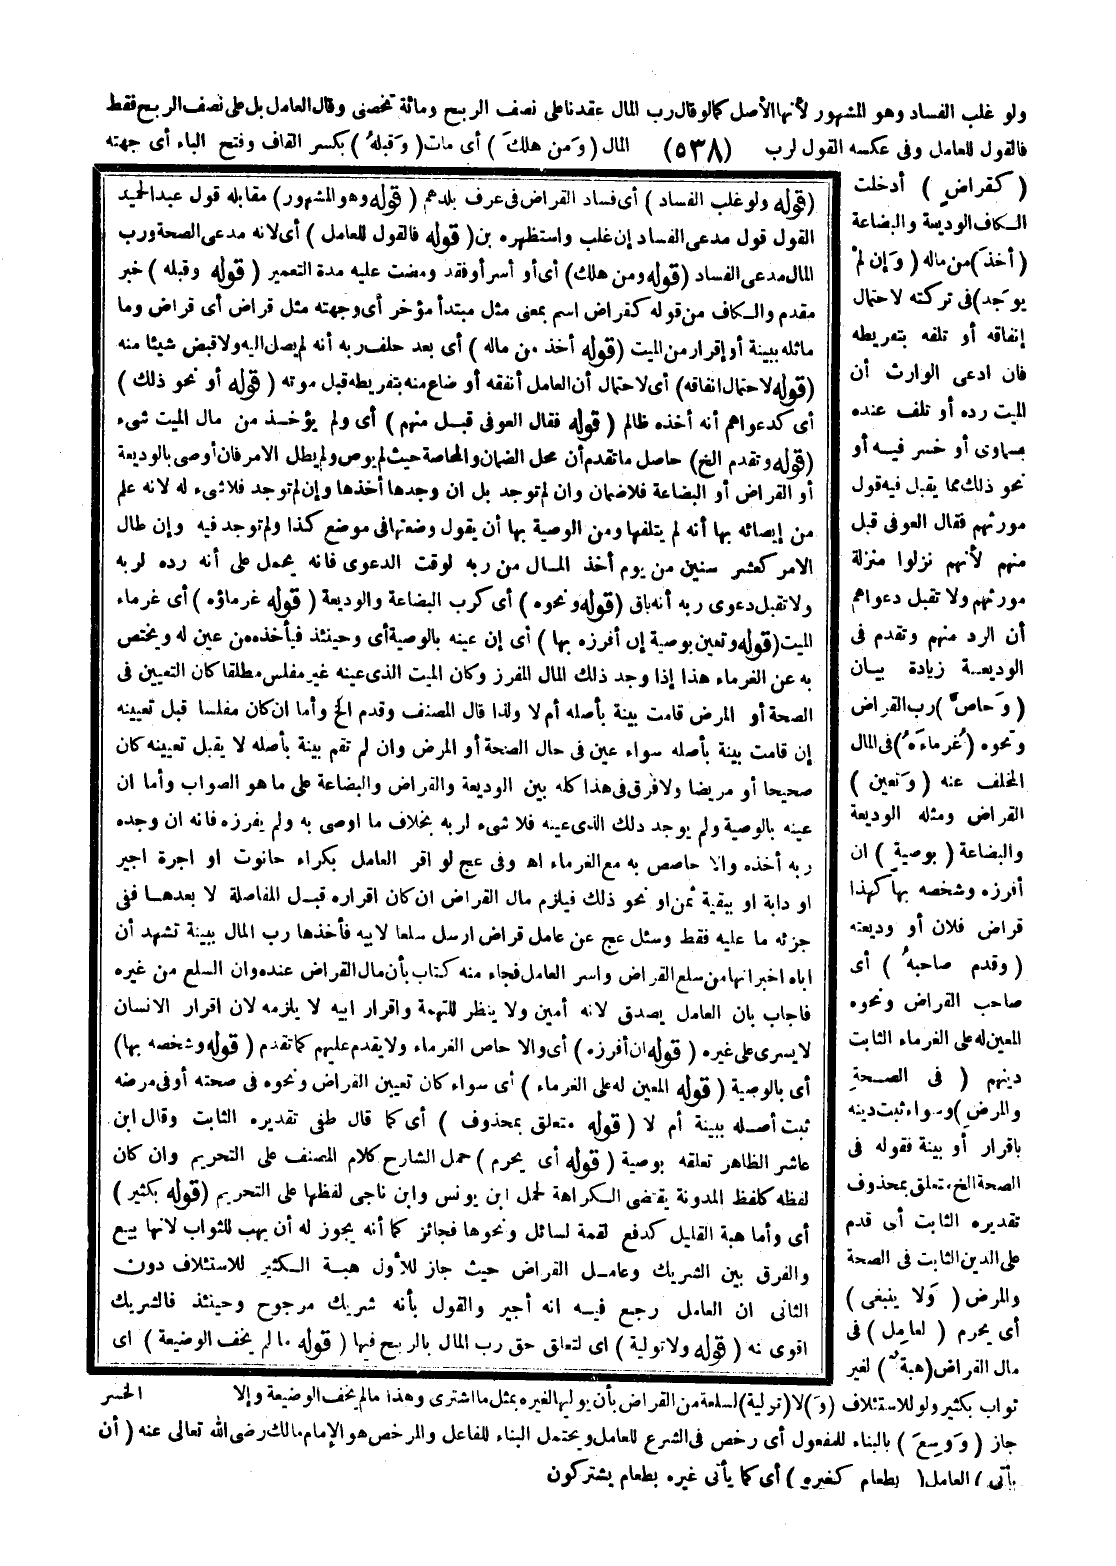 ولو غلب الفساد وهو المشهور لأنها الأصل كما لو قال رب المال عقدنا على نصف الربح ومائة تخصنى وقال العامل بل على نصف الربح فقط
فالقول للعامل وفى عكسه القول لرب (٥٣٨) المال ( وَمن هلكَ ) أى مات ( وَقبلهُ ) بكسر القاف وفتح الباء أى جهته
( كقراضٍ ) أدخلت
الكاف الوديعة والبضاعة
( أخذَ ) من ماله ( وَإن لمْ
يوجَد ) فى تركته لاحتمال
إنفاقه أو تلفه بتفريطه
فان ادعى الوارث أن
الميت رده أو تلف عنده
بسماوى أو خسر فيه أو
نحو ذلك مما يقبل فيه قول
مورثهم فقال العوفى قبل
منهم لأنهم نزلوا منزلة
مورثهم ولا تقبل دعواهم
أن الرد منهم وتقدم فى
الوديعة زيادة بيان
( وَحاصَّ ) رب القراض
ونحوه ( غرماءَهُ ) فى المال
المخلف عنه ( وَتعين )
القراض ومثله الوديعة
والبضاعة ( بوصيةٍ ) ان
أفرزه وشخصه بها كهذا
قراض فلان أو وديعته
( وقدم صاحبهُ ) أى
صاحب القراض ونحوه
المعين له على الغرماء الثابت
دينهم ( فى الصحةِ
والمرضِ ) وسواء ثبت دينه
باقرار أو بينة فقوله فى
الصحة الخ متعلق بمحذوف
تقديره الثابت أى قدم
على الدين الثابت فى الصحة
والمرض ( وَلا ينبغى )
أى يحرم ( لعامِل ) فى
مال القراض ( هبة ) لغير
(قوله ولو غلب الفساد ) أى فساد القراض فى عرف بلدهم ( قوله وهو المشهور) مقابله قول عبد الحميد
القول قول مدعى الفساد إن غلب واستظهره بن ( قوله فالقول للعامل ) أى لانه مدعى الصحة ورب
المال مدعى الفساد (قوله ومن هلك) أى أو أسر أو فقد ومضت عليه مدة التعمير ( قوله وقبله ) خبر
مقدم والكاف من قوله كقراض اسم بمعنى مثل مبتدأ مؤخر أى وجهته مثل قراض أى قراض وما
ماثله ببينة أو إقرار من الميت (قوله أخذ من ماله ) أى بعد حلف ربه أنه لم يصل اليه ولا قبض شيئا منه
(قوله لاحتمال انفاقه) أى لاحتمال أن العامل أنفقه أو ضاع منه بتفريطه قبل موته ( قوله أو نحو ذلك )
أى كدعواهم أنه أخذه ظالم ( قوله فقال العوفى قبل منهم ) أى ولم يؤخذ من مال الميت شىء
(قوله وتقدم الخ) حاصل ما تقدم أن محل الضمان والمحاصة حيث لم يوص ولم يطل الامر فان أوصى بالوديعة
أو القراض أو البضاعة فلا ضمان وان لم توجد بل ان وجدها أخذها وإن لم توجد فلا شىء له لانه علم
من إيصائه بها أنه لم يتلفها ومن الوصية بها أن يقول وضعتها فى موضع كذا ولم توجد فيه وإن طال
الامر كعشر سنين من يوم أخذ المال من ربه لوقت الدعوى فانه يحمل على أنه رده لربه
ولا تقبل دعوى ربه أنه باق (قوله ونحوه ) أى كرب البضاعة والوديعة ( قوله غرماؤه ) أى غرماء
الميت (قوله وتعين بوصية إن أفرزه بها ) أى إن عينه بالوصية أى وحينئذ فيأخذه من عين له ويختص
به عن الغرماء هذا إذا وجد ذلك المال المفرز وكان الميت الذى عينه غير مفلس مطلقا كان التعيين فى
الصحة أو المرض قامت بينة بأصله أم لا ولذا قال المصنف وقدم الخ وأما ان كان مفلسا قبل تعيينه
إن قامت بينة بأصله سواء عين فى حال الصحة أو المرض وان لم تقم بينة بأصله لا يقبل تعيينه كان
صحيحا أو مريضا ولا فرق فى هذا كله بين الوديعة والقراض والبضاعة على ما هو الصواب وأما ان
عينه بالوصية ولم يوجد ذلك الذى عينه فلا شىء لربه بخلاف ما اوصى به ولم يفرزه فانه ان وجده
ربه أخذه والا حاصص به مع الغرماء اه وفى عج لو اقر العامل بكراء حانوت او اجرة اجير
او دابة او ببقية ثمن او نحو ذلك فيلزم مال القراض ان كان اقراره قبل المفاصلة لا بعدها ففى
جزئه ما عليه فقط وسئل عج عن عامل قراض ارسل سلعا لابيه فأخذها رب المال ببينة تشهد أن
اباه اخبر انها من سلع القراض واسر العامل فجاء منه كتاب بأن مال القراض عنده وان السلع من غيره
فاجاب بان العامل يصدق لانه أمين ولا ينظر للتهمة واقرار ابيه لا يلزمه لان اقرار الانسان
لا يسرى على غيره ( قوله ان أفرزه ) أى والا حاص الغرماء ولا يقدم عليهم كما تقدم ( قوله وشخصه بها)
أى بالوصية ( قوله المعين له على الغرماء ) أى سواء كان تعيين القراض ونحوه فى صحته أو فى مرضه
ثبت أصله ببينة أم لا ( قوله متعلق بمحذوف ) أى كما قال طفى تقديره الثابت وقال ابن
عاشر الظاهر تعلقه بوصية ( قوله أى يحرم ) حمل الشارح كلام المصنف على التحريم وان كان
لفظه كلفظ المدونة يقتضى الكراهة لحمل ابن يونس وابن ناجى لفظها على التحريم (قوله بكثير )
أى وأما هبة القليل كدفع لقمة لسائل ونحوها فجائز كما أنه يجوز له أن يهب للثواب لانها بيع
والفرق بين الشريك وعامل القراض حيث جاز للأول هبة الكثير للاستئلاف دون
الثانى ان العامل رجع فيه انه أجير والقول بأنه شريك مرجوح وحينئذ فالشريك
اقوى نه ( قوله ولا تولية ) اى لتعلق حق رب المال بالربح فيها ( قوله ما لم يخف الوضيعة ) اى
الخسر
ثواب بكثير ولو للاستئلاف (وَ) لا (تولية) لسلعة من القراض بأن يوليها لغيره بمثل ما اشترى وهذا ما لم يخف الوضيعة وإلا
جاز ( وَوسعَ ) بالبناء للمفعول أى رخص فى الشرع للعامل ويحتمل البناء للفاعل والمرخص هو الإمام مالك رضى الله تعالى عنه ( أن
يأتى ) العامل ( بطعام كغيره ) أى كما يأتى غيره بطعام يشتركون